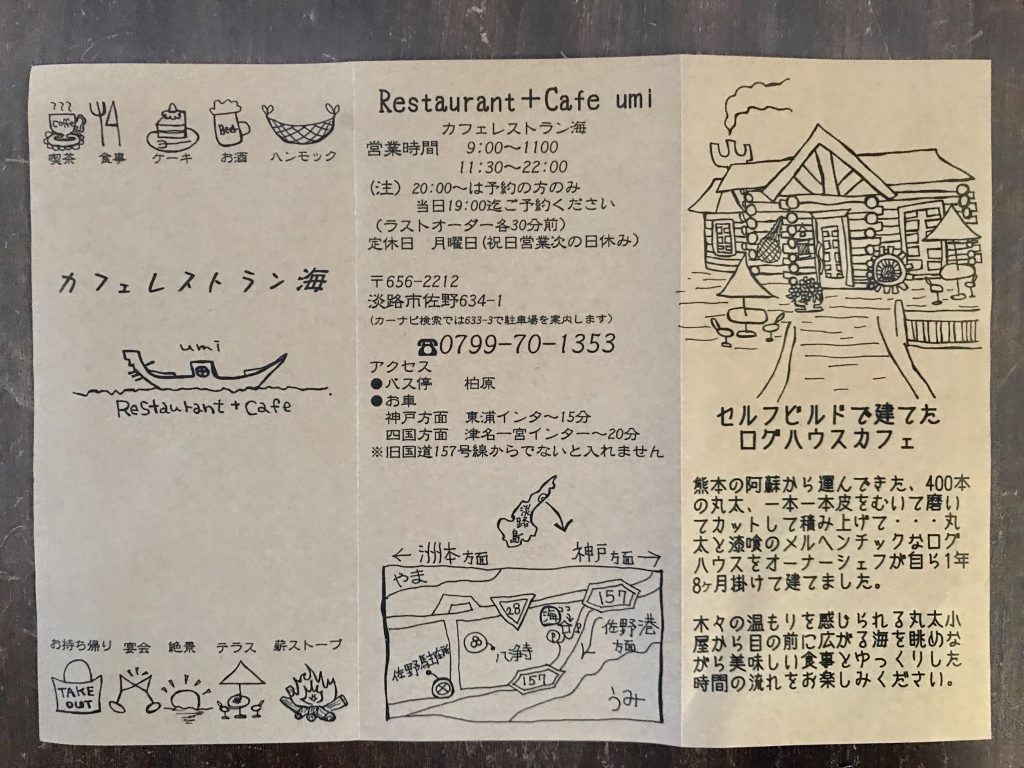 Coffee
Beer
喫茶 食事 ケーキ お酒 ハンモック
カフェレストラン海
umi
Restaurant + Cafe
お持ち帰り 宴会 絶景 テラス 薪ストーブ
TAKE
OUT
Restaurant+Cafe umi
カフェレストラン海
営業時間 9:00〜1100
11:30〜22:00
(注) 20:00〜は予約の方のみ
当日19:00迄ご予約ください
(ラストオーダー各30分前)
定休日 月曜日(祝日営業次の日休み)
〒656-2212
淡路市佐野634-1
(カーナビ検索では633-3で駐車場を案内します)
☎0799-70-1353
アクセス
●バス停 柏原
●お車
神戸方面 東浦インタ〜15分
四国方面 津名一宮インター〜20分
※旧国道157号線からでないと入れません
淡路島
← 洲本方面 神戸方面 →
やま
28
157
海
P
佐野港
方面
八浄寺
佐野駐在所
157
うみ
セルフビルドで建てた
ログハウスカフェ
熊本の阿蘇から運んできた、400本
の丸太、一本一本皮をむいて磨い
てカットして積み上げて・・・丸
太と漆喰のメルヘンチックなログ
ハウスをオーナーシェフが自ら1年
8ヶ月掛けて建てました。
木々の温もりを感じられる丸太小
屋から目の前に広がる海を眺めな
がら美味しい食事とゆっくりした
時間の流れをお楽しみください。